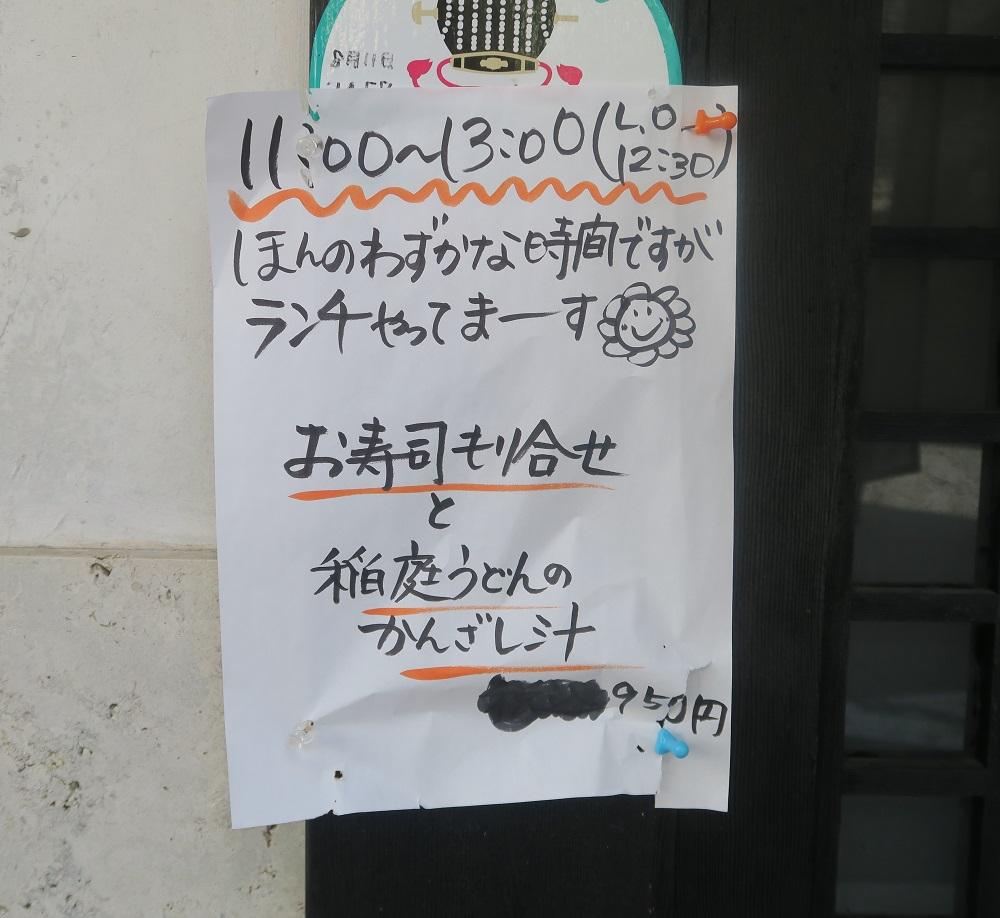 11:00~13:00(L.O
12:30)
ほんのわずかな時間ですが
ランチやってまーす
お寿司もり合せ
と
稲庭うどんの
かんざし汁
950円